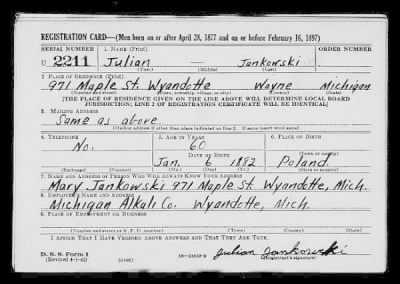 REGISTRATION CARD—(Men born on or after April 28, 1877 and on or before February 16, 1897)
SERIAL NUMBER 1. NAME (Print) ORDER NUMBER
U 2211 Julian Jankowski
(First) (Middle) (Last)
2. PLACE OF RESIDENCE (Print)
971 Maple St. Wyandotte Wayne Michigan
(Number and street) (Town, township, village, or city) (County) (State)
[THE PLACE OF RESIDENCE GIVEN ON THE LINE ABOVE WILL DETERMINE LOCAL BOARD
JURISDICTION; LINE 2 OF REGISTRATION CERTIFICATE WILL BE IDENTICAL]
3. MAILING ADDRESS
Same as above
[Mailing address if other than place indicated on line 2. If same insert word same]
4. TELEPHONE 5. AGE IN YEARS 6. PLACE OF BIRTH
No. 60
DATE OF BIRTH (Town or county)
Jan. 6 1882 Poland
(Exchange) (Number) (Mo.) (Day) (Yr.) (State or country)
7. NAME AND ADDRESS OF PERSON WHO WILL ALWAYS KNOW YOUR ADDRESS
Mary Jankowski 971 Maple St. Wyandotte, Mich.
8. EMPLOYER'S NAME AND ADDRESS
Michigan Alkali Co. Wyandotte, Mich.
9. PLACE OF EMPLOYMENT OR BUSINESS
(Number and street or R. F. D. number) (Town) (County) (State)
I AFFIRM THAT I HAVE VERIFIED ABOVE ANSWERS AND THAT THEY ARE TRUE.
D. S. S. Form 1
(Revised 4-1-42) (over) Julian Jankowski
(Registrant's signature)